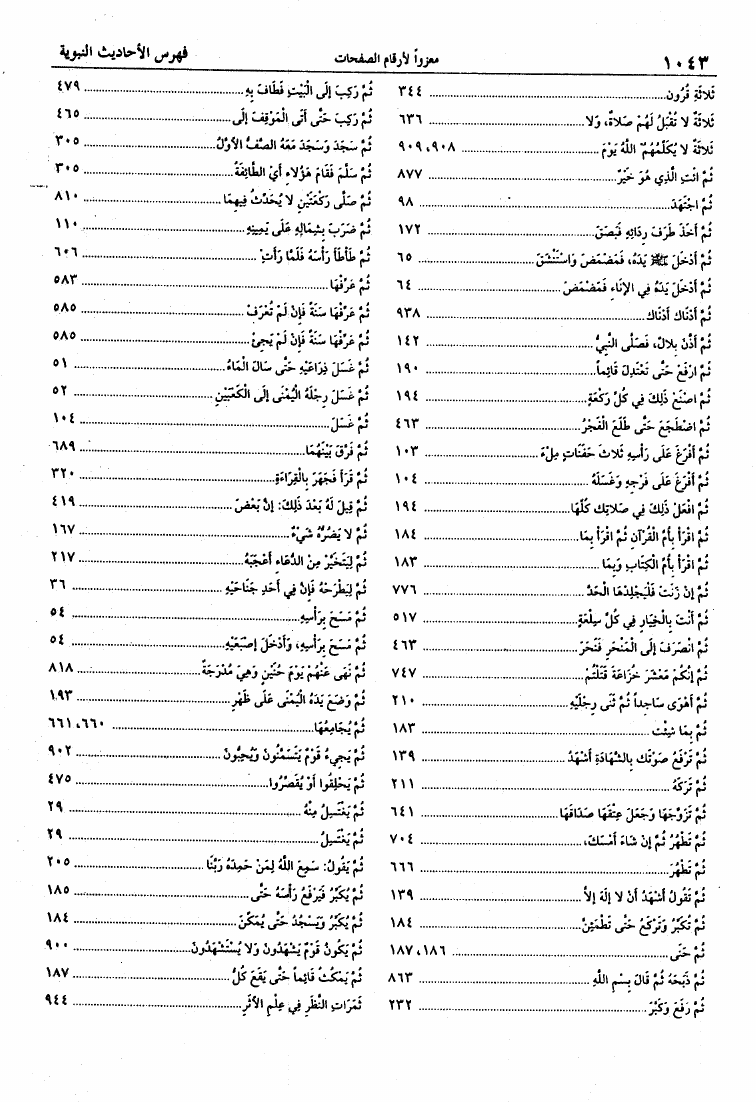 ١٠٤٣ معزواً لأرقام الصفحات فهرس الأحاديث النبوية
ثَلاثَةِ قُرُون ٣٤٤
ثَلاثَةٌ لا تُقْبَلُ لَهُمْ صَلاةٌ، وَلا ٦٣٦
ثَلاثَةٌ لا يُكَلِّمُهُمُ اللَّهُ يَوْمَ ٩٠٨، ٩٠٩
ثُمَّ ائتِ الَّذِي هُوَ خَيْرٌ ٨٧٧
ثُمَّ اجْتَهَدَ ٩٨
ثُمَّ أَخَذَ طَرَفَ رِدَائِهِ فَبَصَقَ ١٧٢
ثُمَّ أَدْخَلَ ﷺ يَدَهُ، فَمَضْمَضَ وَاسْتَنْشَقَ ٦٥
ثُمَّ أَدْخَلَ يَدَهُ فِي الإنَاءِ فَمَضْمَضَ ٦٤
ثُمَّ أَدْنَاكَ أَدْنَاكَ ٩٣٨
ثُمَّ أَذَّنَ بِلالٌ، فَصَلَّى النَّبِيُّ ١٤٢
ثُمَّ ارْفَعْ حَتَّى تَعْتَدِلَ قَائِماً ١٩٠
ثُمَّ اصْنَعْ ذَلِكَ فِي كُلِّ رَكْعَةٍ ١٩٤
ثُمَّ اضْطَجَعَ حَتَّى طَلَعَ الْفَجْرُ ٤٦٣
ثُمَّ أَفْرَغَ عَلَى رَأْسِهِ ثَلاثَ حَفَنَاتٍ مِلْءَ ١٠٣
ثُمَّ أَفْرَغَ عَلَى فَرْجِهِ وَغَسَلَهُ ١٠٤
ثُمَّ افْعَلْ ذَلِكَ فِي صَلاتِكَ كُلِّهَا ١٩٤
ثُمَّ اقْرَأْ بِأُمِّ الْقُرْآنِ ثُمَّ اقْرَأْ بِمَا ١٨٤
ثُمَّ اقْرَأْ بِأُمِّ الْكِتَابِ وَبِمَا ١٨٣
ثُمَّ إنْ زَنَتْ فَلْيَجْلِدْهَا الْحَدَّ ٧٧٦
ثُمَّ أَنْتَ بِالْخِيَارِ فِي كُلِّ سِلْعَةٍ ٥١٧
ثُمَّ انْصَرَفَ إلَى الْمَنْحَرِ فَنَحَرَ ٤٦٣
ثُمَّ إنَّكُمْ مَعْشَرَ خُزَاعَةَ قَتَلْتُمْ ٧٤٧
ثُمَّ أَهْوَى سَاجِداً ثُمَّ ثَنَى رِجْلَيْهِ ٢١٠
ثُمَّ بِمَا شِئْت ١٨٣
ثُمَّ تَرْفَعُ صَوْتَك بِالشَّهَادَةِ أَشْهَدُ ١٣٩
ثُمَّ تَرَكَهُ ٢١١
ثُمَّ تَزَوَّجَهَا وَجَعَلَ عِتْقَهَا صَدَاقَهَا ٦٤١
ثُمَّ تَطْهُرُ ثُمَّ إنْ شَاءَ أَمْسَكَ، ٧٠٤
ثُمَّ تَطْهُرَ ٦٦٦
ثُمَّ تَقُولُ أَشْهَدُ أَنْ لا إلَهَ إلاَّ ١٣٩
ثُمَّ تُكَبِّرُ وَتَرْكَعُ حَتَّى تَطْمَئِنَّ ١٨٤
ثُمَّ حَتَى ١٨٦، ١٨٧
ثُمَّ ذَبَحَهُ ثُمَّ قَالَ بِسْمِ اللَّهِ ٨٦٣
ثُمَّ رَفَعَ وَكَبَّرَ ٢٣٢
ثُمَّ رَكِبَ إلَى الْبَيْتِ فَطَافَ بِهِ ٤٧٩
ثُمَّ رَكِبَ حَتَّى أَتَى الْمَوْقِفَ إلَى ٤٦٥
ثُمَّ سَجَدَ وَسَجَدَ مَعَهُ الصَّفُّ الأوَّلُ ٣٠٥
ثُمَّ سَلَّمَ فَقَامَ هَؤُلاءِ أَيْ الطَّائِفَةُ ٣٠٥
ثُمَّ صَلَّى رَكْعَتَيْنِ لا يُحَدِّثُ فِيهِمَا ٨١٠
ثُمَّ ضَرَبَ بِشِمَالِهِ عَلَى يَمِينِهِ ١١٠
ثُمَّ طَأْطَأَ رَأْسَهُ فَلَمَّا رَأَتْ ٦٠٦
ثُمَّ عَرِّفْهَا ٥٨٣
ثُمَّ عَرِّفْهَا سَنَةً فَإنْ لَمْ تُعْرَفْ ٥٨٥
ثُمَّ عَرِّفْهَا سَنَةً فَإنْ لَمْ يَجِئْ ٥٨٥
ثُمَّ غَسَلَ ذِرَاعَيْهِ حَتَّى سَالَ الْمَاءُ ٥١
ثُمَّ غَسَلَ رِجْلَهُ الْيُمْنَى إلَى الْكَعْبَيْنِ ٥٢
ثُمَّ غَسَلَ ١٠٤
ثُمَّ فَرَّقَ بَيْنَهُمَا ٦٨٩
ثُمَّ قَرَأَ فَجَهَرَ بِالْقِرَاءَةِ ٣٢٠
ثُمَّ قِيلَ لَهُ بَعْدَ ذَلِكَ: إنَّ بَعْضَ ٤١٩
ثُمَّ لا يَضُرُّهُ شَيْءٌ ١٦٧
ثُمَّ لِيَتَخَيَّرْ مِنَ الدُّعَاءِ أَعْجَبَهُ ٢١٧
ثُمَّ لِيَطْرَحْهُ فَإنَّ فِي أَحَدِ جَنَاحَيْهِ ٣٦
ثُمَّ مَسَحَ بِرَأْسِهِ ٥٤
ثُمَّ مَسَحَ بِرَأْسِهِ، وَأَدْخَلَ إصْبَعَيْهِ ٥٤
ثُمَّ نَهَى عَنْهُمْ يَوْمَ حُنَيْنٍ وَهِيَ مُدْرَجَةٌ ٨١٨
ثُمَّ وَضَعَ يَدَهُ الْيُمْنَى عَلَى ظَهْرِ ١٩٣
ثُمَّ يُجَامِعُهَا ٦٦٠، ٦٦١
ثُمَّ يَجِيءُ قَوْمٌ يَتَسَمَّنُونَ وَيُحِبُّونَ ٩٠٢
ثُمَّ يَحْلِقُوا أَوْ يُقَصِّرُوا ٤٧٥
ثُمَّ يَغْتَسِلُ مِنْهُ ٢٩
ثُمَّ يَغْتَسِلُ ٢٩
ثُمَّ يَقُولُ: سَمِعَ اللَّهُ لِمَنْ حَمِدَهُ رَبَّنَا ٢٠٥
ثُمَّ يُكَبِّرُ فَيَرْفَعُ رَأْسَهُ حَتَّى ١٨٥
ثُمَّ يُكَبِّرُ وَيَسْجُدُ حَتَّى يُمَكِّنَ ١٨٤
ثُمَّ يَكُونُ قَوْمٌ يَشْهَدُونَ وَلا يُسْتَشْهَدُونَ ٩٠٠
ثُمَّ يَمْكُثُ قَائِماً حَتَّى يَقَعَ كُلُّ ١٨٧
ثَمَرَاتِ النَّظَرِ فِي عِلْمِ الأثَرِ ٩٤٤